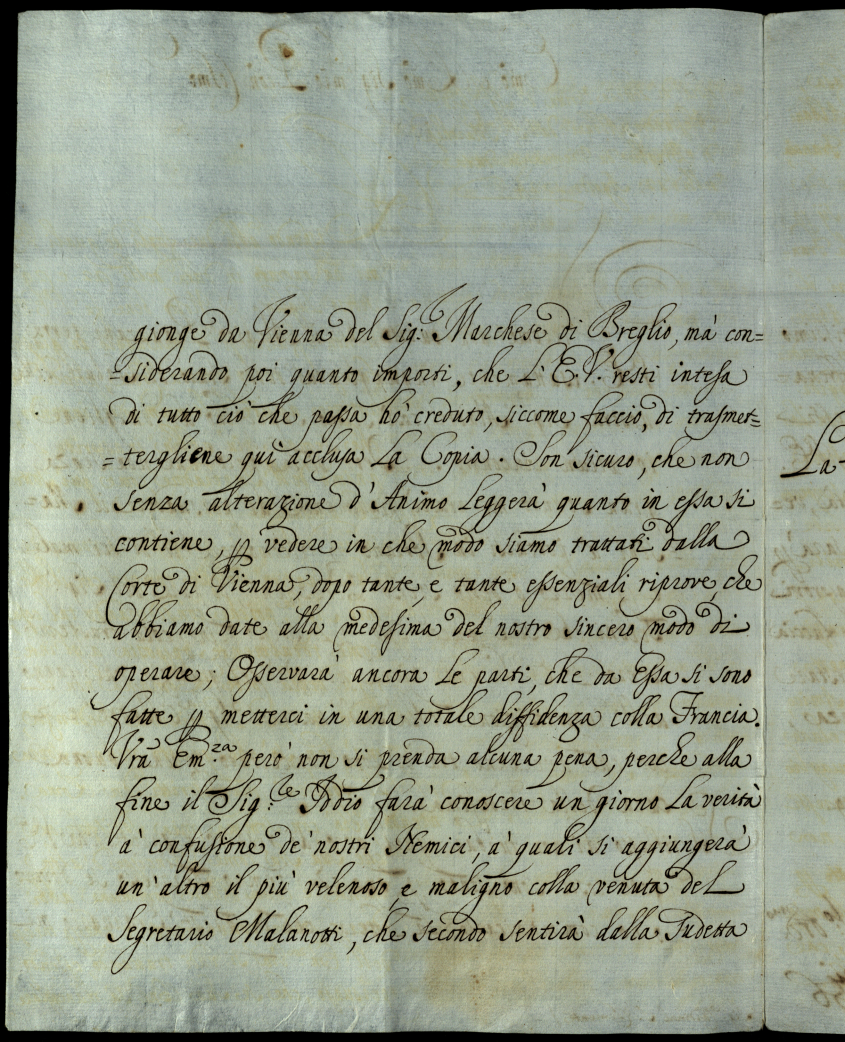 gionge da Vienna del Sig:r Marchese di Breglio, mà con=
=siderando poi quanto importi, che L'E.V. resti intesa
di tutto ciò che passa hò creduto, siccome faccio, di trasmet=
=tergliene qui acclusa La Copia. Son sicuro, che non
senza alterazione d'Animo Leggerà quanto in essa si
contiene, p vedere in che modo siamo trattati dalla
Corte di Vienna, dopo tante, e tante essenziali riprove, che
abbiamo date alla medesima del nostro sincero modo di
operare; Osservarà ancora Le parti, che da Essa si sono
fatte p metterci in una totale diffidenza colla Francia.
Vrã Em:za però non si prenda alcuna pena, perche alla
fine il Sig:re Iddio farà conoscere un giorno La verità
à confusione de' nostri Nemici, a' quali si aggiungerà
un'altro il più velenoso, e maligno colla venuta del
Segretario Malanotti, che secondo sentirà dalla Sudetta
La